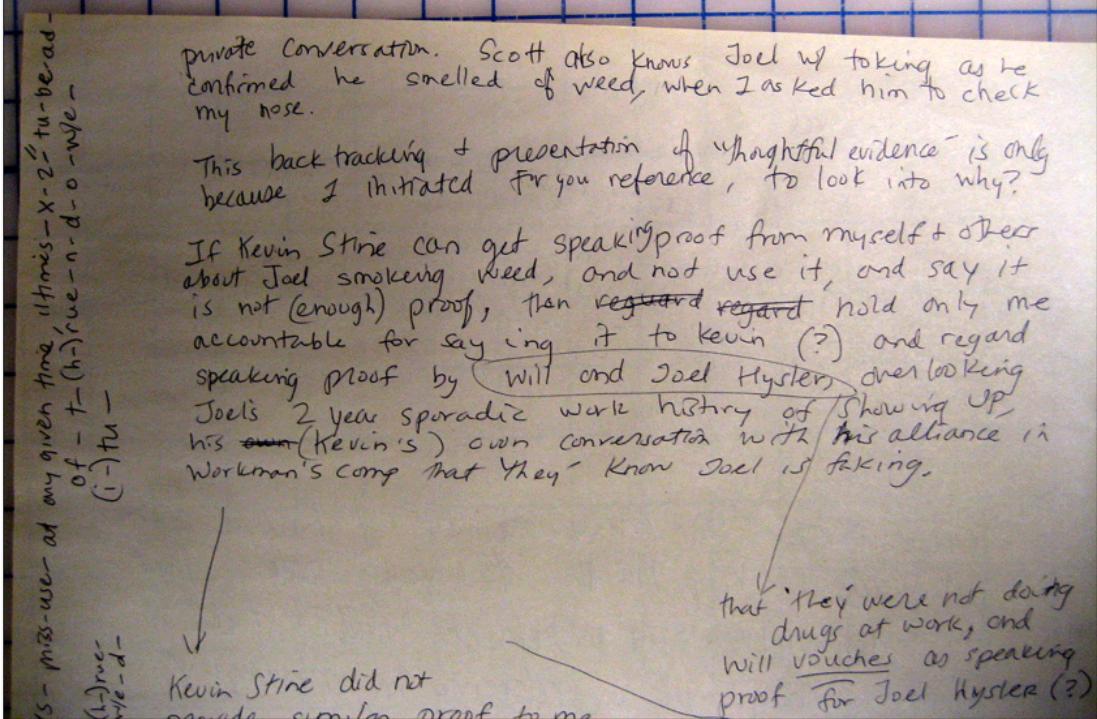 private conversation. Scott also knows Joel w/ toking as he
confirmed he smelled of weed, when I asked him to check
my nose.
This back tracking + presentation of "thoughtful evidence" is only
because I initiated for you reference, to look into why?
If Kevin Stine can get speaking proof from myself + others
about Joel smokeing weed, and not use it, and say it
is not (enough) proof, then reguard regard hold only me
accountable for say ing it to Kevin (?) and regard
speaking proof by Will and Joel Hysler, over looking
Joel's 2 year sporadic work history of showing up,
his own (Kevin's) own conversation with his alliance in
Workman's comp that "they" know Joel is faking.
that "they" were not doing
drugs at work, and
Will vouches as speaking
proof for Joel Hysler (?)
Kevin Stine did not
similar proof to me
at any given time, - x - 2" tu - be ad -
of - t - (h-) rue - n - d - o - w/e -
(i-) tu -
(h-) rue -
w/e - d -